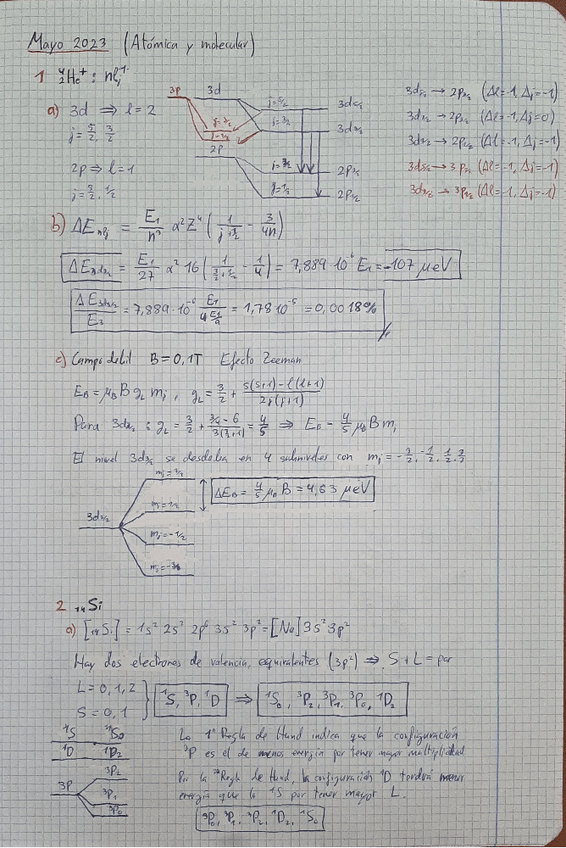 Mayo 2023 (Atómica y molecular)
1 ⁴₂He⁺ : nlⱼ
a) 3d ⇒ l = 2
j = 5/2, 3/2
2p ⇒ l = 1
j = 3/2, 1/2
3P 3d j=5/2 3d₅/₂
j=3/2 3d₃/₂
2P j=3/2 2P₃/₂
j=1/2 2P₁/₂
3d₅/₂ → 2P₃/₂ (Δl=-1, Δj=-1)
3d₃/₂ → 2P₃/₂ (Δl=-1, Δj=0)
3d₃/₂ → 2P₁/₂ (Δl=-1, Δj=-1)
3d₅/₂ → 3P₃/₂ (Δl=-1, Δj=-1)
3d₃/₂ → 3P₁/₂ (Δl=-1, Δj=-1)
b) ΔEₙₗⱼ = E₁/n³ α² Z⁴ (1/(j+1/2) - 3/4n)
ΔE₃d₃/₂ = E₁/27 α² 16 (1/(3/2+1/2) - 1/4) = 7,889·10⁻⁶ E₁ = -107 μeV
ΔE₃d₃/₂/E₃ = 7,889·10⁻⁶ E₁/(4E₁/9) = 1,78·10⁻⁵ = 0,0018%
c) Campo débil B = 0,1T Efecto Zeeman
E_B = μ_B B g_L mⱼ , g_L = 3/2 + (s(s+1) - l(l+1))/(2j(j+1))
Para 3d₃/₂ : g_L = 3/2 + (3/4 - 6)/(3(3/2+1)) = 4/5 ⇒ E_B = 4/5 μ_B B mⱼ
El nivel 3d₃/₂ se desdobla en 4 subniveles con mⱼ = -3/2, -1/2, 1/2, 3/2
mⱼ=3/2
ΔE_B = 4/5 μ_B B = 4,63 μeV
mⱼ=1/2
3d₃/₂
mⱼ=-1/2
mⱼ=-3/2
2 ₁₄Si
a) [₁₄Si] = 1s² 2s² 2p⁶ 3s² 3p² = [Ne] 3s² 3p²
Hay dos electrones de valencia, equivalentes (3p²) ⇒ S + L = par
L = 0, 1, 2
S = 0, 1
¹S, ³P, ¹D ⇒ ¹S₀, ³P₂, ³P₁, ³P₀, ¹D₂
¹S ¹S₀
¹D ¹D₂
3P 3P₂
3P₁
3P₀
La 1ª Regla de Hund indica que la configuración
³P es el de menos energía por tener mayor multiplicidad
Por la 2ª Regla de Hund, la configuración ¹D tendrá menor
energía que la ¹S por tener mayor L.
³P₀, ³P₁, ³P₂, ¹D₂, ¹S₀